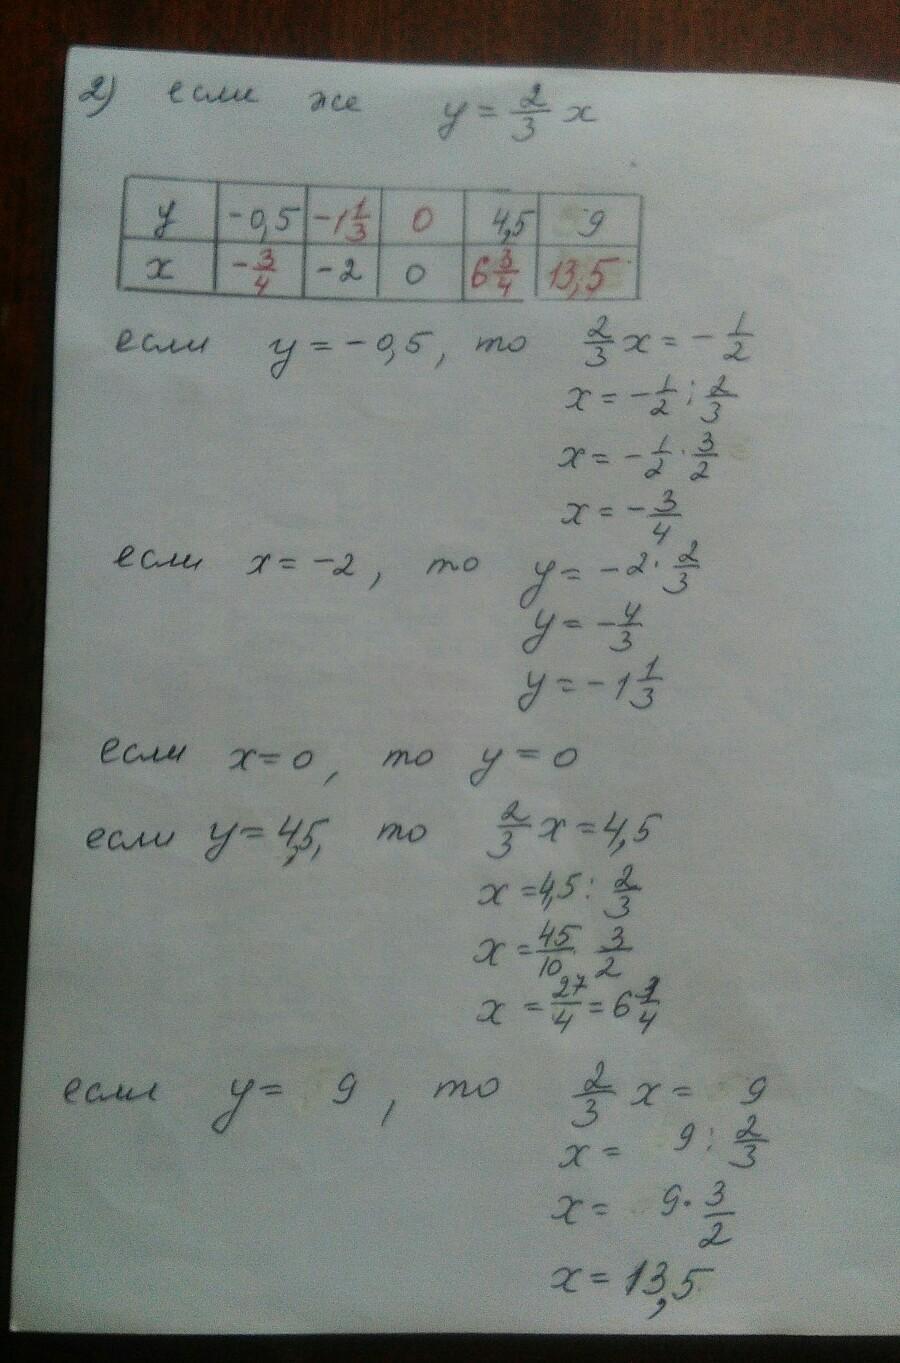 2) если же y = 2/3 x
y -0,5 -1 1/3 0 4,5 9
x -3/4 -2 0 6 3/4 13,5
если y = -0,5, то 2/3 x = - 1/2
x = - 1/2 : 2/3
x = - 1/2 · 3/2
x = - 3/4
если x = -2, то y = -2 · 2/3
y = - 4/3
y = -1 1/3
если x = 0, то y = 0
если y = 4,5, то 2/3 x = 4,5
x = 4,5 : 2/3
x = 45/10 · 3/2
x = 27/4 = 6
если y = 9, то 2/3 x = 9
x = 9 : 2/3
x = 9 · 3/2
x = 13,5